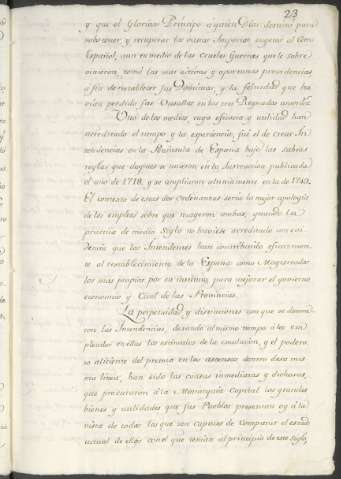 23
y que el Glorioso Principe a quien Dios destinó para
sostener, y recuperar las vastas Provincias sugetas al Cetro
Español, aun en medio de las crueles Guerras que le sobre
vinieron, tomó las mas activas y oportunas providencias
a fin de restablecer sus Dominios, y la felicidad que ha
vian perdido sus Vasallos en los tres Reynados anteriores
Uno de los medios, cuya eficacia y utilidad han
acreditado el tiempo y la experiencia, fué el de crear In
tendencias en la Peninsula de España bajo las sabias
reglas que despues se unieron en la Instruccion publicada
el año de 1718, y se ampliaron ultimamente en la de 1749.
El contexto de estas dos ordenanzas seria la mejor apologia
de los empleos sobre que recayeron ambas, quando la
práctica de medio Siglo no hubiese acreditado con evi
dencia que los Intendentes han contribuido eficazmen
te al restablecimiento de la España como Magistrados
los mas propios por su instituto, para mejorar el govierno
economico y Civil de las Provincias.
La propiedad y distinciones con que se dotaron
con las Intendencias, dexando al mismo tiempo a los em
pleados en ellas los estimulos de la emulacion, y el podero
so aliciente del premio en los ascensos dentro de su mis
ma linea, han sido las causas inmediatas y dichosas,
que procuraron á la Monarquia Capital los grandes
bienes y utilidades que sus Pueblos presentan oy á la
vista de todos los que son capaces de comparar el estado
actual de ellos con el que tenian al principio de este Siglo,